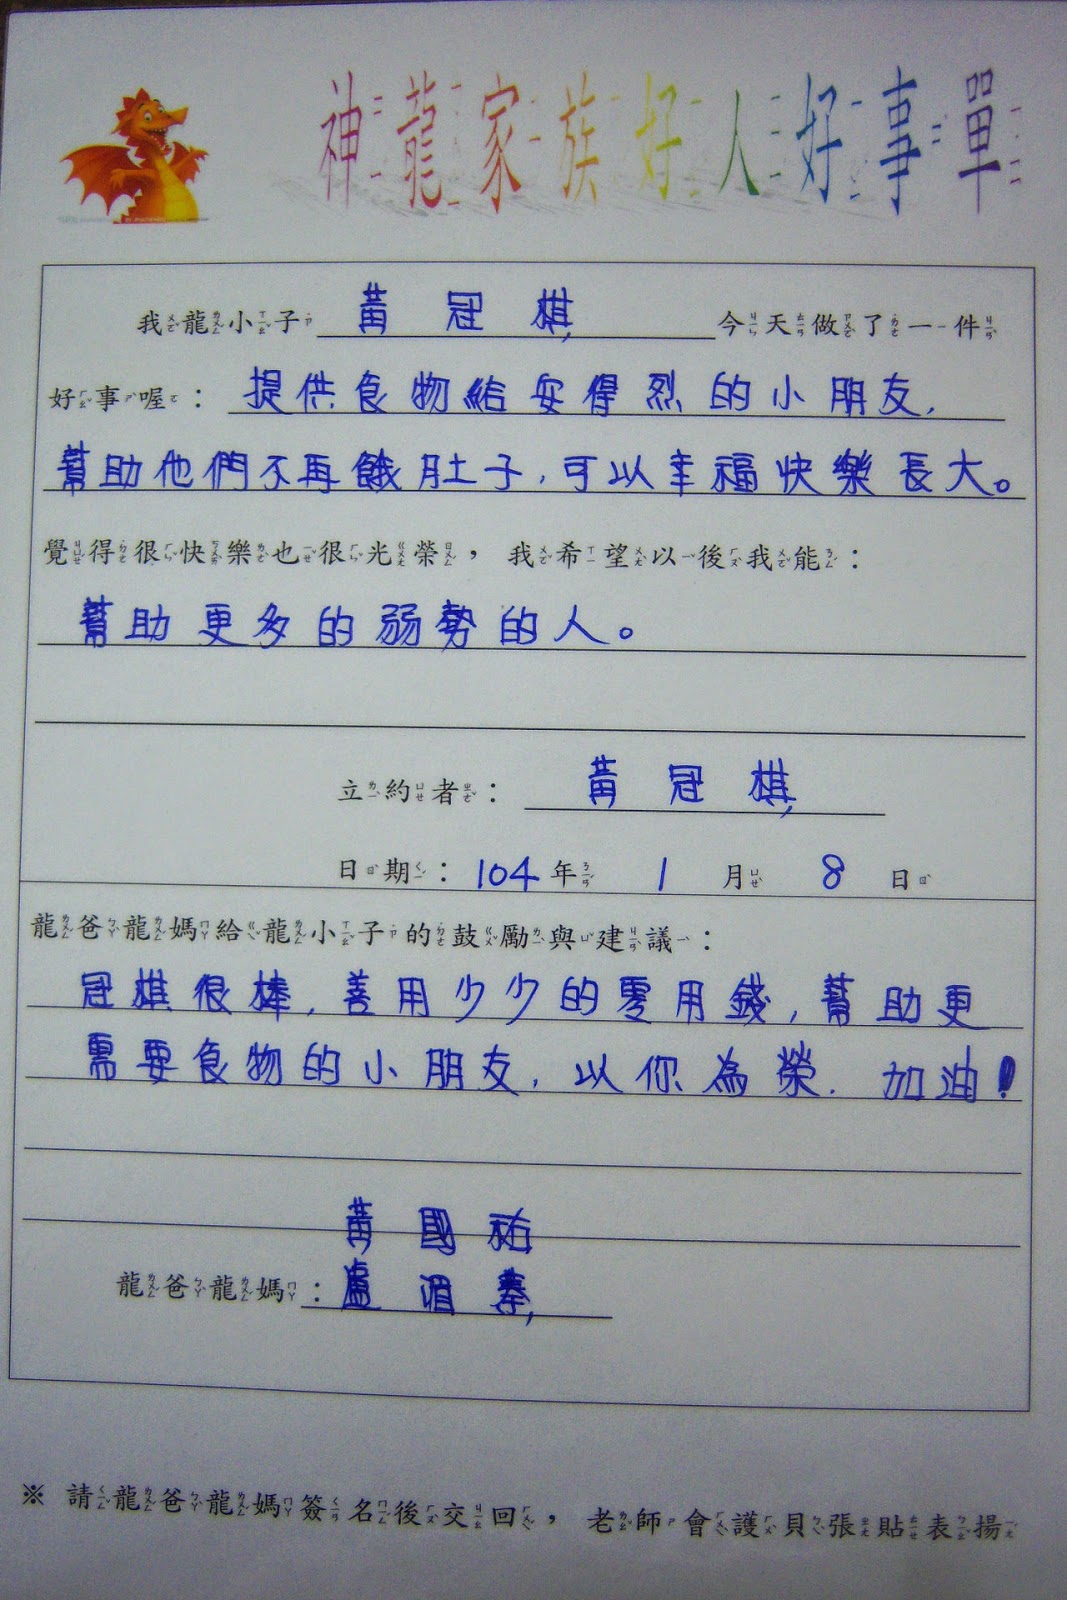 神龍家族好人好事單
我龍小子 黃冠棋 今天做了一件
好事喔：提供食物給安得烈的小朋友，
幫助他們不再餓肚子，可以幸福快樂長大。
覺得很快樂也很光榮，我希望以後我能：
幫助更多的弱勢的人。
立約者：黃冠棋
日期：104年 1 月 8 日
龍爸龍媽給龍小子的鼓勵與建議：
冠棋很棒，善用少少的零用錢，幫助更
需要食物的小朋友，以你為榮．加油！
黃國祐
龍爸龍媽：盧湄
※ 請龍爸龍媽簽名後交回，老師會護貝張貼表揚